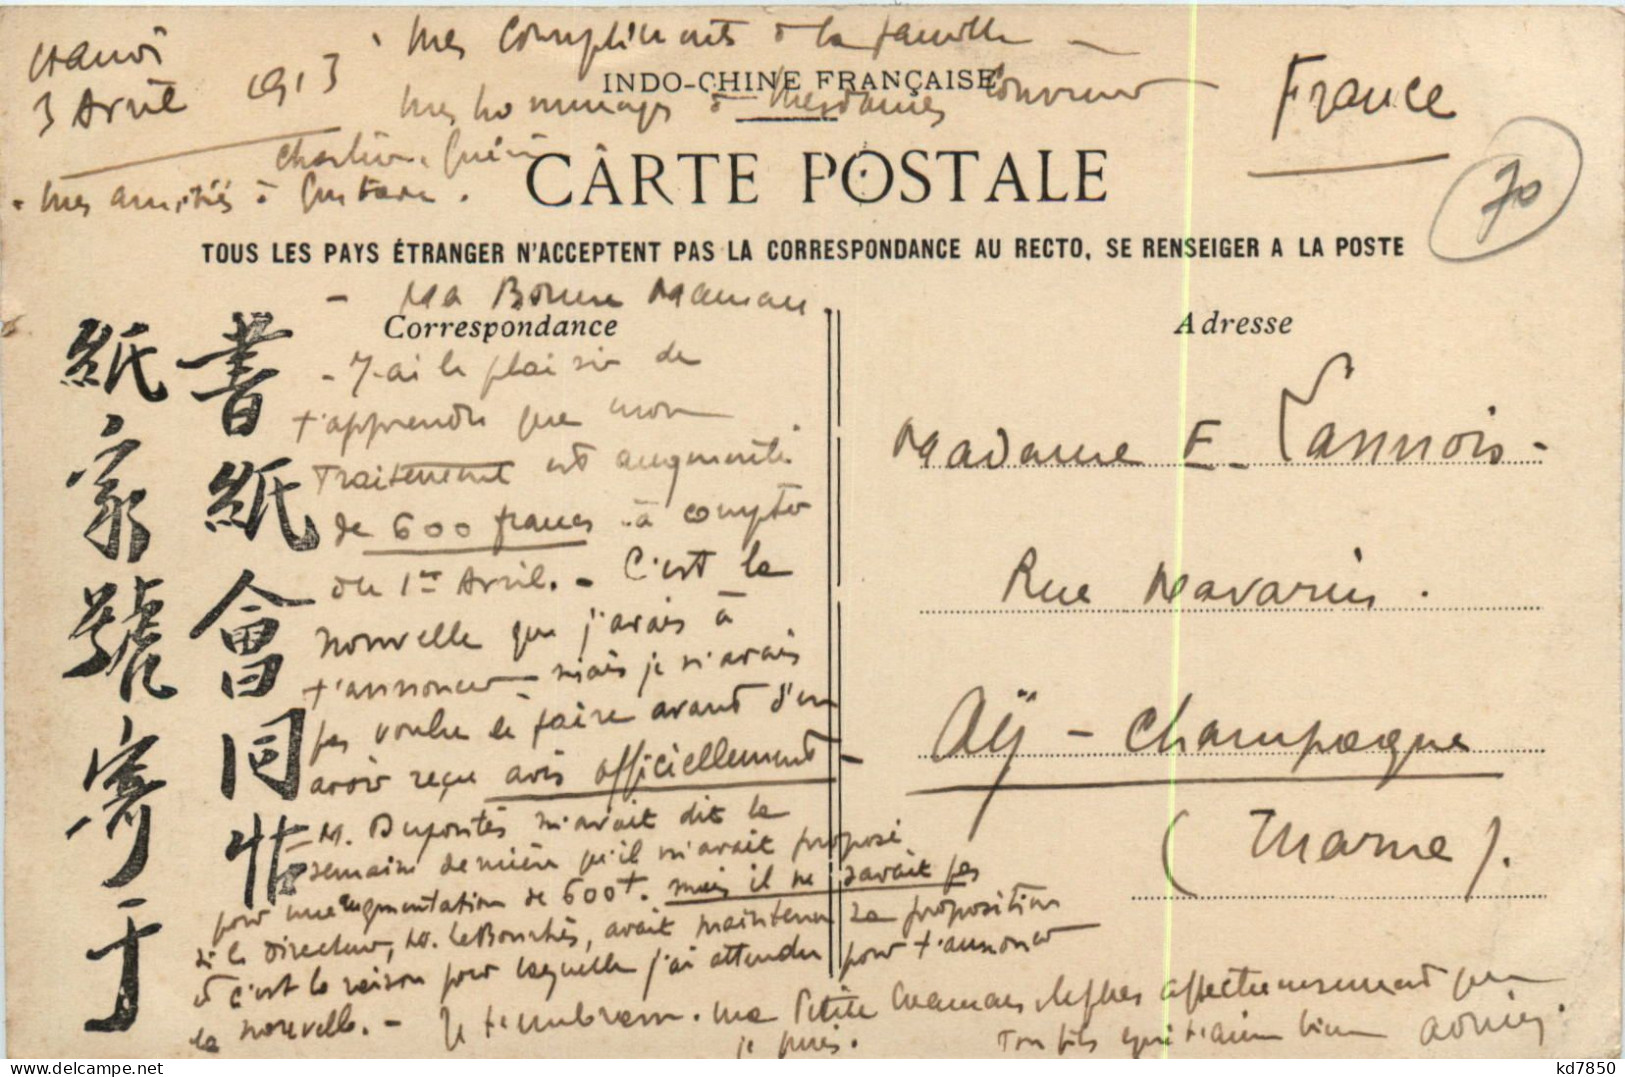 Hanoi
3 Avril 1913
Mes Compliments à la famille -
INDO-CHINE FRANÇAISE
Mes hommages à Mesdames
France
mes amitiés à Gustave.
CARTE POSTALE
70
TOUS LES PAYS ÉTRANGER N'ACCEPTENT PAS LA CORRESPONDANCE AU RECTO, SE RENSEIGER A LA POSTE
- Ma Bonne Maman.
Correspondance
- J'ai le plaisir de
t'apprendre que mon
traitement est augmenté
de 600 francs à compter
du 1er Avril. - C'est la
nouvelle que j'avais à
t'annoncer - mais je n'avais
pas voulu le faire avant d'en
avoir reçu avis officiellement -
- M. Duportès m'avait dit la
semaine dernière qu'il m'avait proposé
pour une augmentation de 600f. mais il ne savait pas
si le Directeur, M. avait maintenu sa proposition
et c'est la raison pour laquelle j'ai attendu pour t'annoncer
la nouvelle. - Je t'embrasse ma Petite Maman affectueusement que
je puis. Ton fils qui t'aime bien
書紙會同帖
紙家號寄于
Adresse
Madame E. Lannois -
Rue Navarin.
Aÿ - Champagne
(Marne).
kd7850